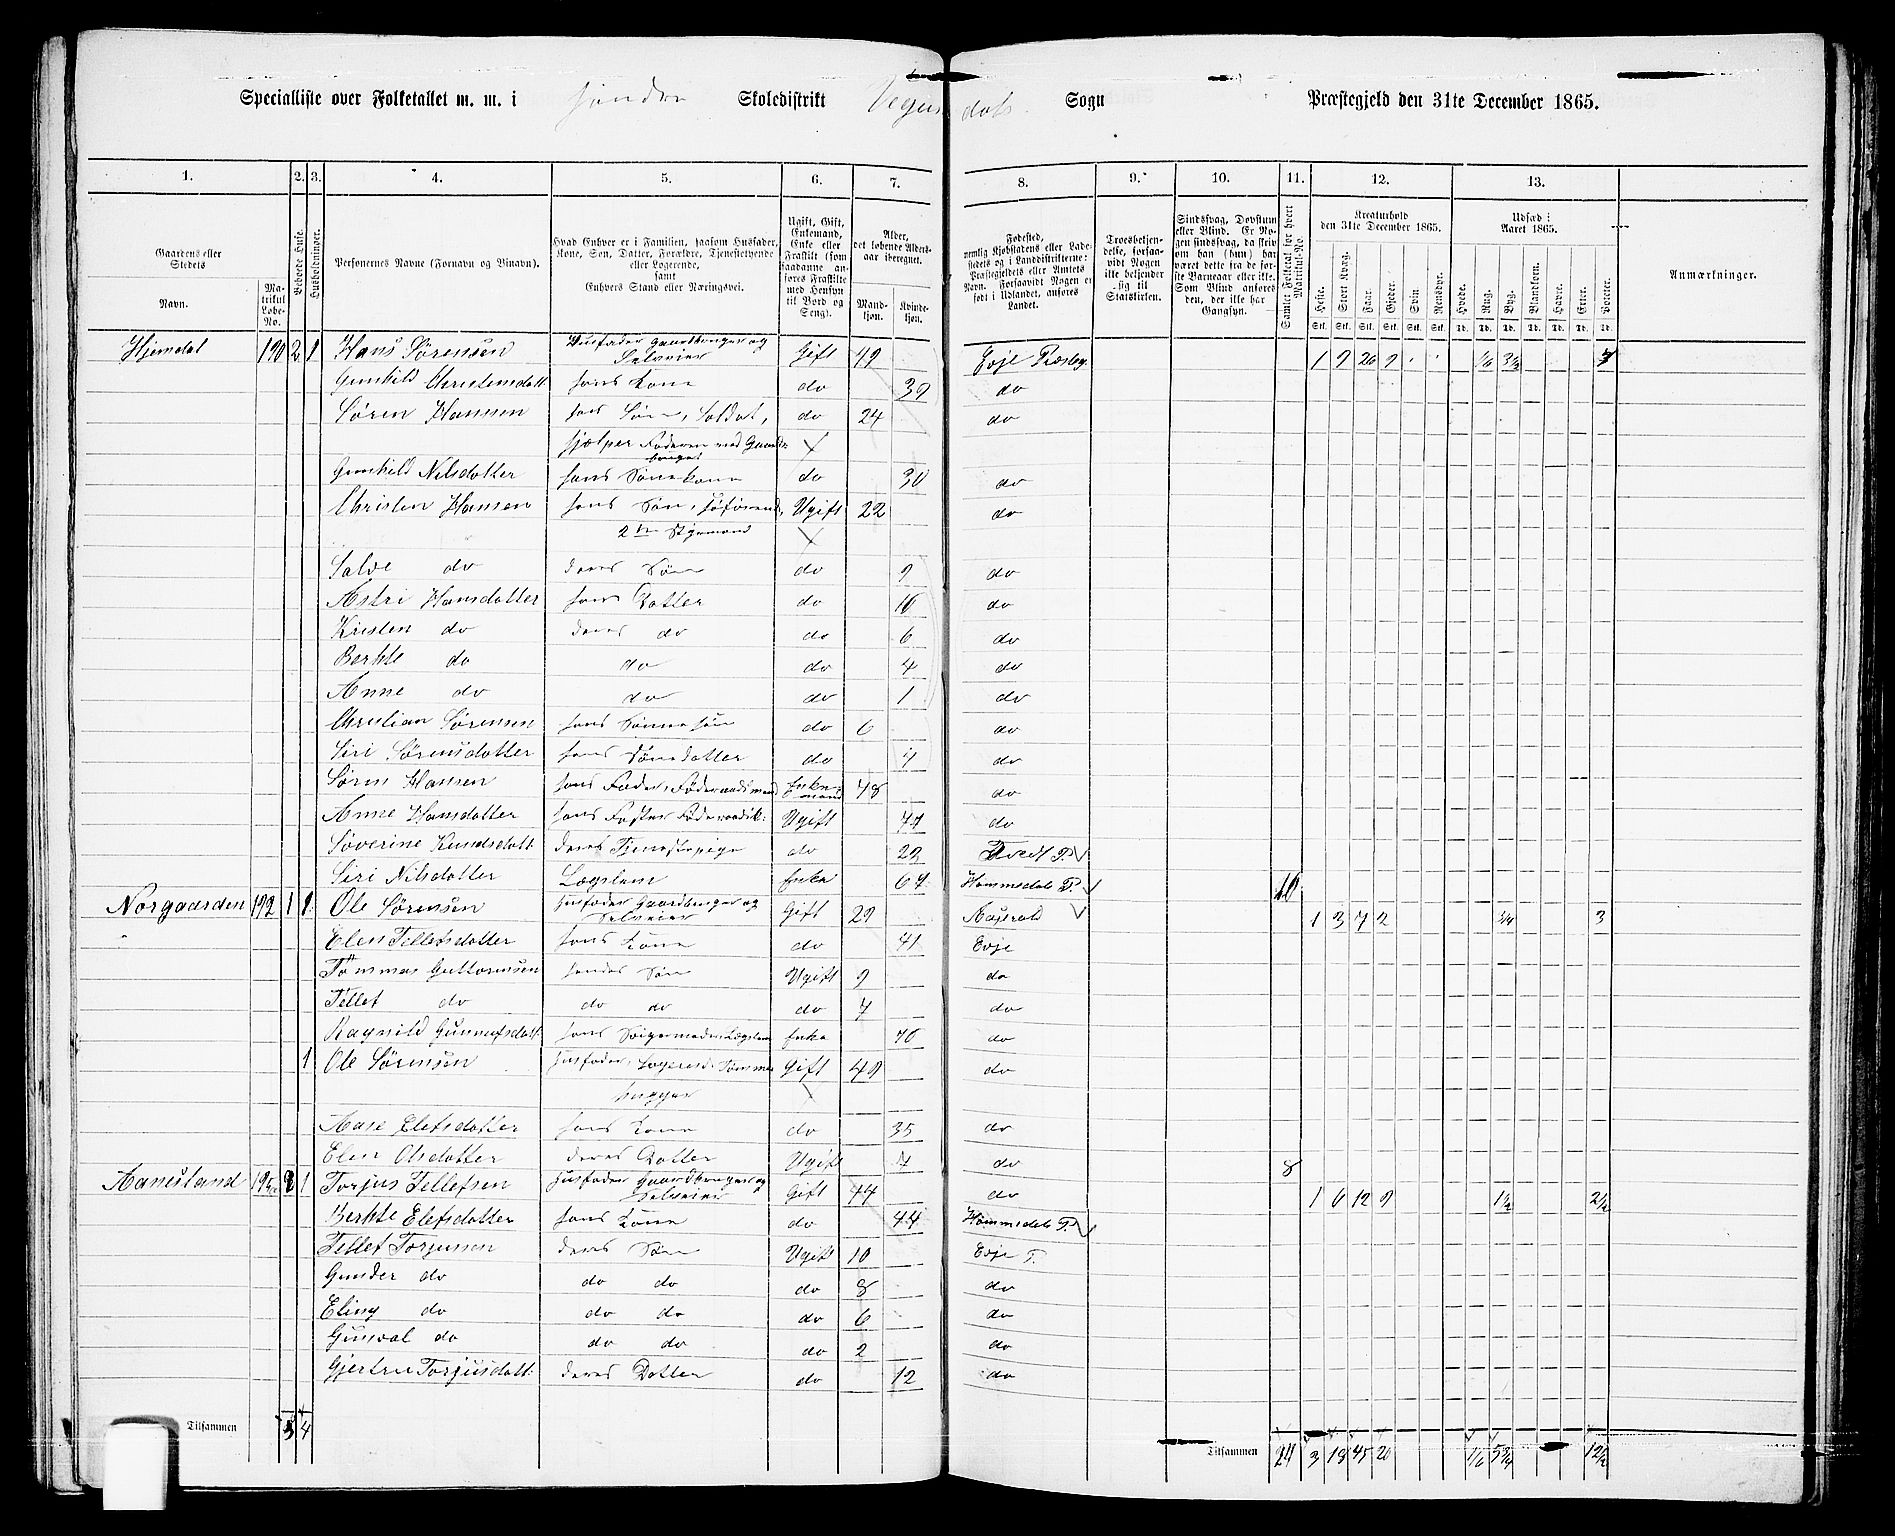 Specialliste over Folketallet m. m. i søndre Skoledistrikt Vegusdals Sogn Præstegjeld den 31te December 1865.
1. 2. 3. 4. 5. 6. 7. 8. 9. 10. 11. 12. 13.
Gaardens eller Stedets
Navn.
Matrikul Løbe-No.
Beboede Huse.
Husholdninger.
Personernes Navne (Fornavn og Binavn).
Hvad Enhver er i Familien, saasom Husfader, Kone, Søn, Datter, Forældre, Tjenestetyende eller Logerende, samt Enhvers Stand eller Næringsvei.
Ugift, Gift, Enkemand, Enke eller Fraskilt (som saadanne anføres Fraskilte med Hensyn til Bord og Seng).
Alder, det løbende Alders-aar iberegnet.
Mand-kjøn.
Kvinde-kjøn.
Fødested, nemlig Kjøbstadens eller Ladestedets og i Landdistrikterne: Præstegjeldets eller Amtets Navn. Forsaavidt Nogen er født i Udlandet, anføres Landet.
Troesbekjendelse, forsaavidt Nogen ikke bekjender sig til Statskirken.
Sindssvag, Døvstum eller Blind. Er Nogen sindssvag, da skriv om han (hun) har været dette fra de første Barneaar eller ikke. Som Blind anføres den, der ikke har Gangsyn.
Samlet Folketal for hvert Matrikul-No.
Kreaturhold den 31te December 1865.
Heste. Stort Kvæg. Faar. Gjeder. Svin. Rensdyr.
Stk. Stk. Stk. Stk. Stk. Stk.
Udsæd i Aaret 1865.
Hvede. Rug. Byg. Blandkorn. Havre. Erter. Poteter.
Td. Td. Td. Td. Td. Td. Td.
Anmærkninger.
Hjemdal 190 2 1 Hans Sørensen Husfader Gaardbruger og Selveier Gift 49 Evje Præstg. 1 9 26 9 1/6 3 1/2 7
Gunhild Christensdatt hans Kone do 39 do
Søren Hanssen hans Søn, Soldat, do 24 do
hjælper Faderen med Gaards-bruget
Gunhild Nilsdatter hans Sønekone do 30 do
Christen Hansen hans Søn, Ugift 22 do
2den Styrmand
Salve do deres Søn do 9 do
Astri Hansdatter hans Datter do 16 do
Kristen do deres do do 6 do
Berhte do do do 4 do
Anne do do do 1 do
Christian Sørensen hans Sønnesøn do 6 do
Siri Sørensdatter hans Sønedatter do 7 do
Søren Hansen hans Fader, Føderaadsmand Enkemand 78 do
Anne Hansdatter hans Faster Føderaadsk: Ugift 77 do
Søverine Knudsdatt deres Tjenestepige do 22 Tvedt P
Siri Nilsdatter Lægslem Enke 67 Hommedals P. 16
Norgaarden 192 1 1 Ole Sørensen Husfader Gaardbruger og Selveier Gift 29 Aaseral 1 3 7 2 3/4 3
Elen Tellefsdatter hans Kone do 41 Evje
Tommas Guttormsen hendes Søn Ugift 9 do
Tellef do do do do 7 do
Ragnild Gunnufsdatt: hans Svigermoder Lægslem Enke 70 do
1 Ole Sørensen Husfader, Logerend. Tømmer- Gift 49 do
hugger
Aase Elefsdatter hans Kone do 35 do
Elen Olsdatter deres Datter Ugift 4 do 8
Aanesland 195 2 1 Torjus Tellefsen Husfader Gaardbruger og Selveier Gift 44 do 1 6 12 9 1 1/2 2 1/2
Berhte Elefsdatter hans Kone do 44 Hommedals P.
Tellef Torjussen deres Søn Ugift 10 Evje P.
Gunder do do do do 8 do
Eling do do do do 6 do
Gunval do do do do 2 do
Gjertru Torjusdatt: deres Datter do 12 do
Tilsammen 5 4 Tilsammen 24 3 18 45 20 1/6 5 3/4 12 1/2